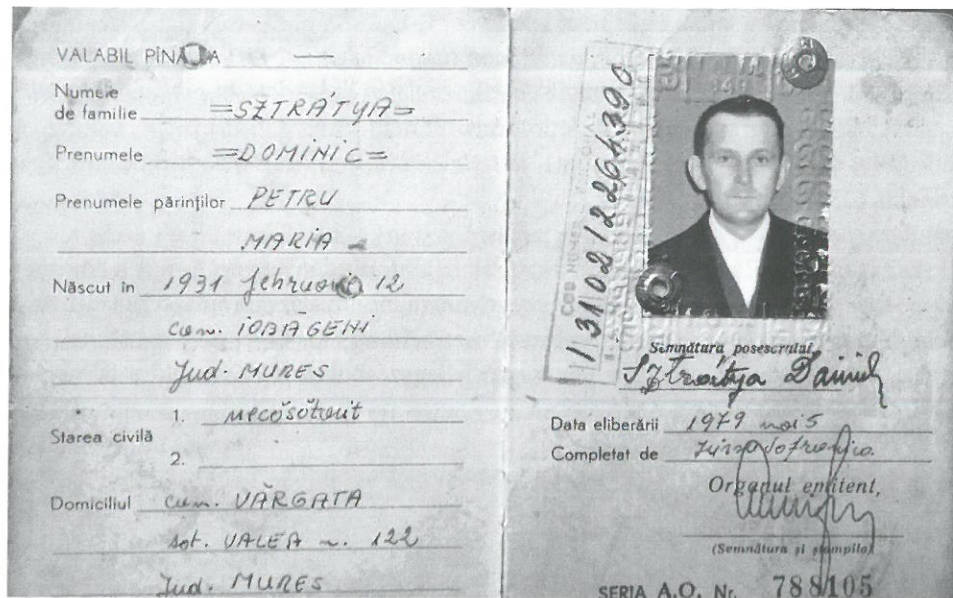 VALABIL PÎNĂ LA
Numele
de familie =SZTRATYA=
Prenumele =DOMINIC=
Prenumele părinților PETRU
MARIA
Născut în 1931 februarie 12
com. IOBĂGENI
Jud. MUREȘ
Starea civilă 1. necăsătorit
2.
Domiciliul com. VĂRGATA
sat. VALEA n. 122
Jud. MUREȘ
COD NUMERIC
1310212264390
Semnătura posesorului,
Sztrátya Dániel
Data eliberării 1979 mai 5
Completat de
Organul emitent,
(Semnătura și ștampila)
SERIA A.O. Nr. 788105